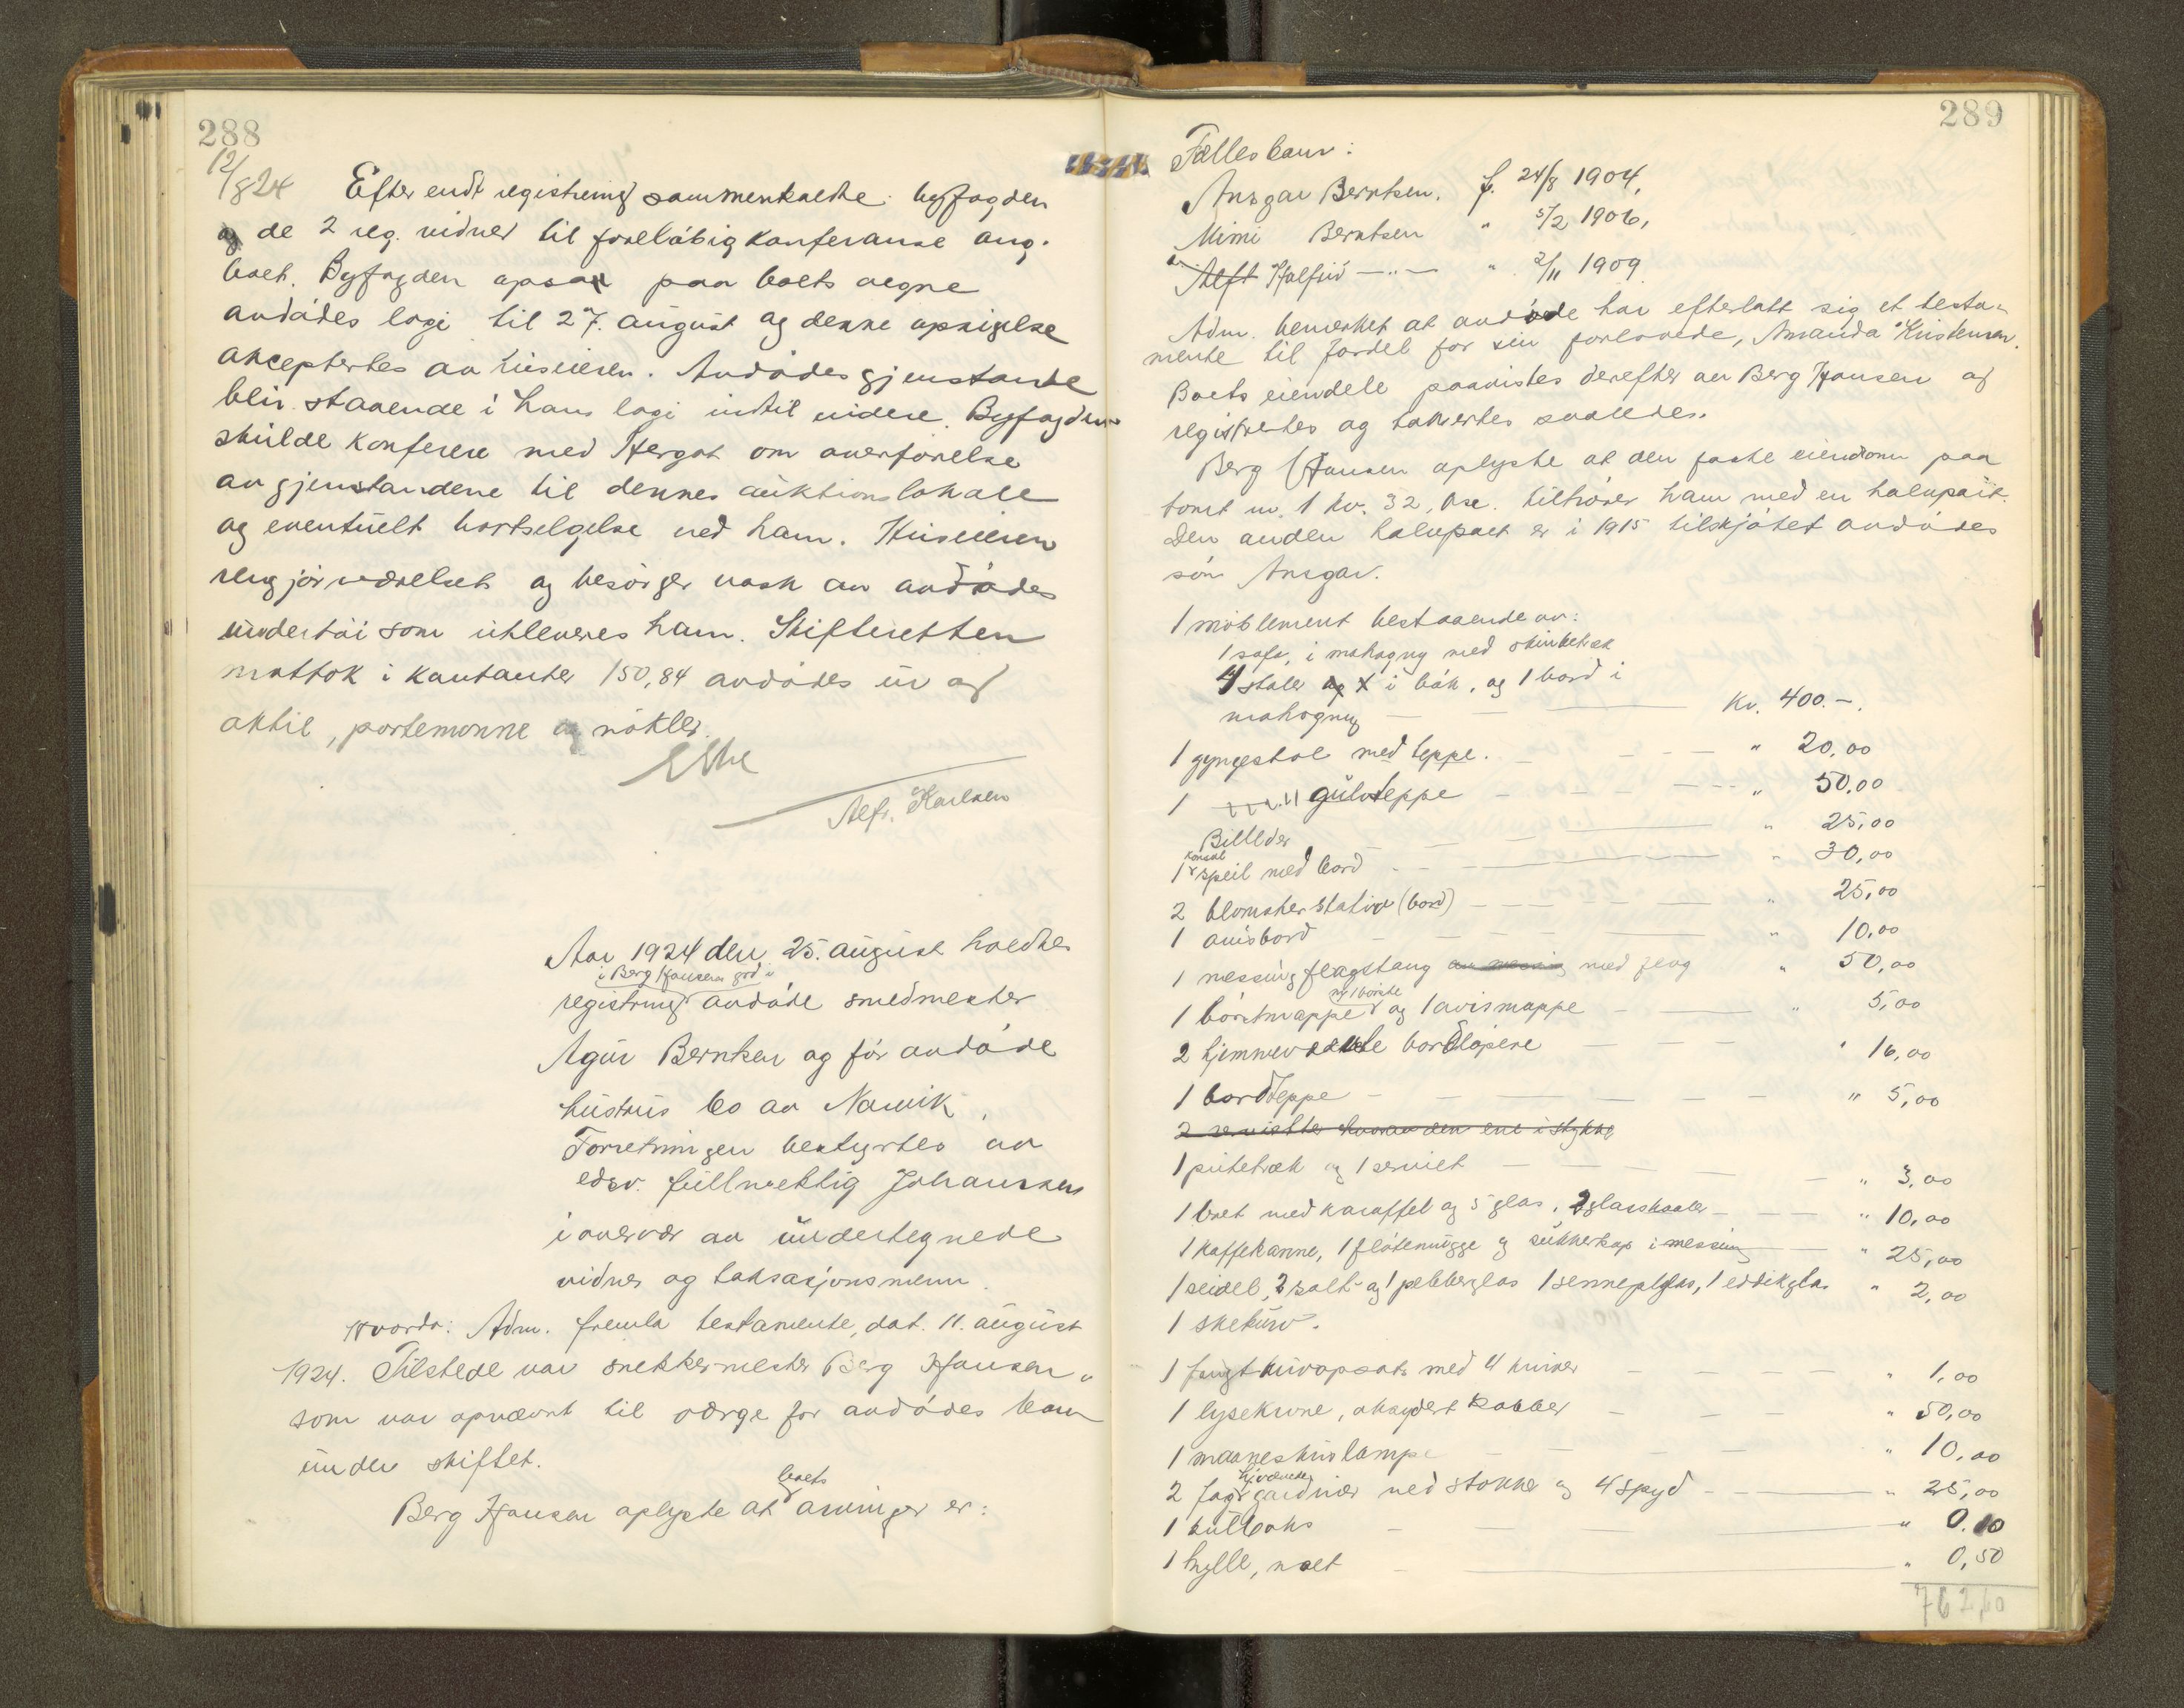 288
12/8 24 Efter endt registrering sammenkaldte byfogden
og de 2 reg. vidner til foreløbig konferanse ang.
boet. Byfogden opsa paa boets vegne
avdødes logi til 27. august og denne opsigelse
akseptertes av huseieren. Avdødes gjenstande
blir staaende i hans logi indtil videre. Byfogden
skulde konferere med Hergot om overførelse
av gjenstandene til dennes auktionslokale
og eventuelt bortselgelse ved ham. Huseieren
rengjør værelset og besørger vask av avdødes
undertøi som utleveres ham. Skifteretten
mottok i kontanter 150,84 avdødes ur og
, portemonne og nøkler.
Alfr. Karlsen
Aar 1924 den 25. august holdtes
i Berg Hansens gård i
registrering avdøde smedmester
Agur Berntsen og før avdøde
hustrus bo av Narvik.
Forretningen bestyrtes av
edsv. fullmektig Johanssen
i overvær av undertegnede
vidner og taksasjonsmenn.
Hvorda: Adm. fremla testamente, dat. 11. august
1924. Tilstede var snekkermester Berg Hansen
som var opnævnt til værge for avdødes barn
under skiftet.
boets
Berg Hansen oplyste at arvinger er:
289
Fælles barn:
Ansgar Berntsen. f. 24/8 1904,
Mimi Berntsen " 5/2 1906,
Alft Halfrid —"— " 2/11 1909.
Adm. bemerket at avdøde har efterlatt sig et testa-
mente til fordel for sin forlovede, Amanda Kristensen.
Boets eiendele paavistes derefter av Berg Hansen og
registrertes og takertes saaledes.
Berg Hansen oplyste at den faste eiendom paa
tomt nr. 1 kv. 32, Ose. tilhører ham med en halvpart.
Den anden halvpart er i 1915 tilskjøtet avdødes
søn Ansgar.
1 møblement bestaaende av:
1 sofa, i mahogny med skinbetræk
4 stoler og 1 i bøk, og 1 bord i
mahogny — — — Kr. 400.-.
1 gyngestol med teppe. — " 20,00
1 gulvteppe — " 50,00
Billeder — " 25,00
konsol
1 speil med bord — " 30,00
2 blomsterstativ (bord) — " 25,00
1 avisbord — " 10,00
1 messing flagstang av messing med flag " 50,00
m/ 1 børste
1 børstmappe og 1 avismappe — " 5,00
2 hjemmevævede bordløpere — " 16,00
1 bordteppe — " 5,00
2 servietter hvorav den ene i stykke
1 putetræk og 1 serviet — " 3,00
1 bret med karaffel og 5 glas, 2 glasskaaler — " 10,00
1 kaffekanne, 1 fløtemugge og sukkerkop i messing " 25,00
1 seidel, 2 salt- og 1 pebberglas 1 sennepsglas, 1 eddikglas " 2,00
1 skekurv.
1 frugtknivopsats med 4 kniver — " 1,00
1 lysekrone, oksydert kobber — " 50,00
1 maaneskinslampe — " 10,00
hjvævede
2 fag gardiner med stokke og 4 spyd — " 25,00
1 kulboks — " 0.10
1 hylle, malt — " 0,50
762,60